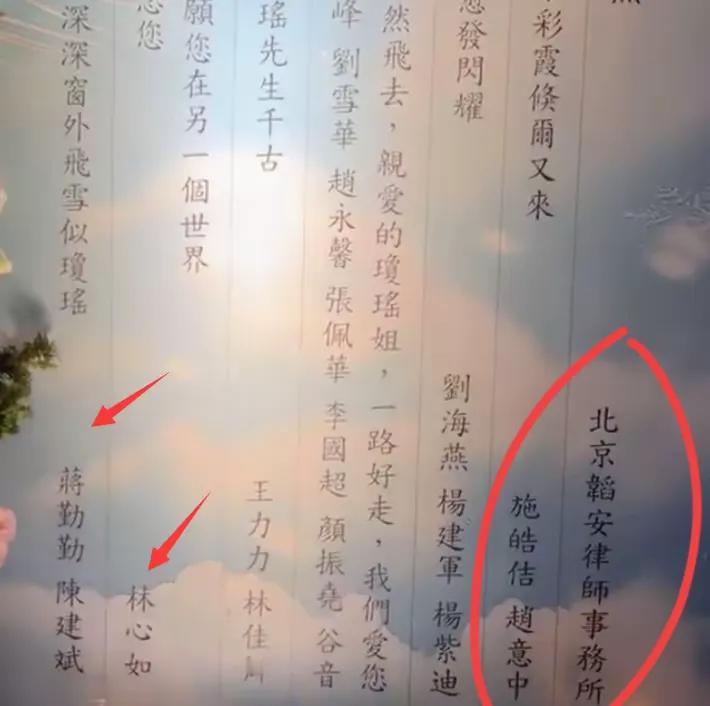 彩霞倏爾又來
北京韜安律師事務所
施皓佶 趙意中
您發閃耀
劉海燕 楊建軍 楊紫迪
然飛去,親愛的瓊瑤姐,一路好走,我們愛您
峰 劉雪華 趙永馨 張佩華 李國超 顏振堯 谷音
瑤先生千古
王力力 林佳
願您在另一個世界
您
林心如
深深窗外飛雪似瓊瑤
蔣勤勤 陳建斌